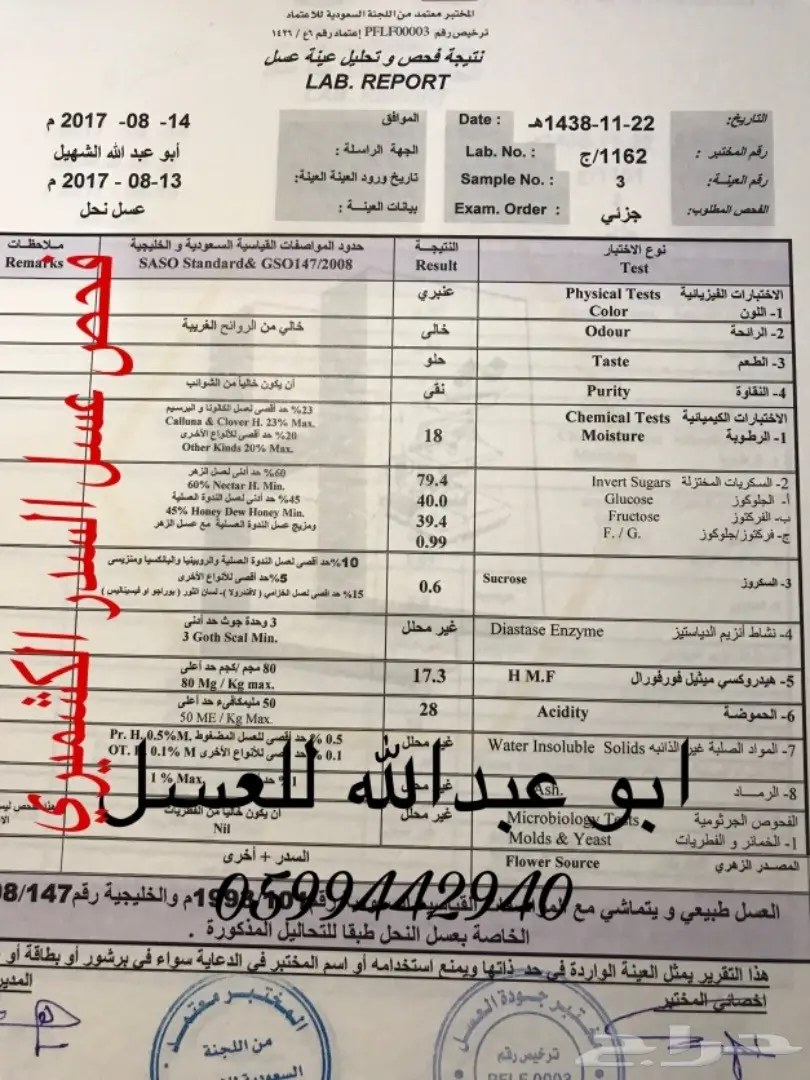 المختبر معتمد من اللجنة السعودية للاعتماد
ترخيص رقم PFLF00003 إعتماد رقم ٦ع / ١٤٢٦
نتيجة فحص و تحليل عينة عسل
LAB. REPORT
التاريخ: 1438-11-22هـ Date : الموافق 14- 08- 2017 م
رقم المختبر : 1162/ج Lab. No. : الجهة الراسلة : أبو عبد الله الشهيل
رقم العينة: 3 Sample No. : تاريخ ورود العينة العينة: 13-08 - 2017 م
الفحص المطلوب: جزئي Exam. Order : بيانات العينة : عسل نحل
نوع الاختبار النتيجة حدود المواصفات القياسية السعودية و الخليجية ملاحظات
Test Result SASO Standard& GSO147/2008 Remarks
الاختبارات الفيزيائية Physical Tests عنبري
1- اللون Color
2- الرائحة Odour خالى خالي من الروائح الغريبة
3- الطعم Taste حلو
4- النقاوة Purity نقى أن يكون خالياً من الشوائب
الاختبارات الكيميائية Chemical Tests
1- الرطوبة Moisture 18
23% حد أقصى لعسل الكالونا و البرسيم
Calluna & Clover H. 23% Max.
20% حد أقصى للأنواع الأخرى
Other Kinds 20% Max.
2- السكريات المختزلة Invert Sugars 79.4
أ- الجلوكوز Glucose 40.0
ب- الفركتوز Fructose 39.4
ج- فركتوز/جلوكوز F. / G. 0.99
60% حد أدنى لعسل الزهر
60% Nectar H. Min.
45% حد أدنى لعسل الندوة العسلية
45% Honey Dew Honey Min.
ومزيج عسل الندوة العسلية مع عسل الزهر
3- السكروز Sucrose 0.6
10% حد اقصى لعسل الندوة العسلية والروبينيا والبانكسيا ومنزيسى
5% حد أقصى للأنواع الأخرى
15% حد اقصى لعسل الخزامي ( لافندرولا )- لسان الثور ( بوراجو او فيسينالیس )
4- نشاط أنزيم الدياستيز Diastase Enzyme غير محلل
3 وحدة جوث حد أدنى
3 Goth Scal Min.
5- هيدروكسي ميثيل فورفورال H M.F 17.3
80 مجم /كجم حد أعلى
80 Mg / Kg max.
6- الحموضة Acidity 28
50 مليمكافىء حد أعلى
50 ME / Kg Max.
7- المواد الصلبة غير الذائبه Water Insoluble Solids غير محلل
0.5 % حد أقصى للعسل المضغوط Pr. H. 0.5%M.
0.1 % حد أقصى للأنواع الأخرى 0.1% M
8- الرمـاد Ash. غير محلل
1 % Max.
الفحوص الجرثومية Microbiology Tests غير محلل
1- الخمائر و الفطريات Molds & Yeast
أن يكون خالياً من الفطريات
Nil
المصدر الزهري Flower Source السدر + أخرى
فحص عسل السدر الكشميري
ابو عبدالله للعسل
0599442940
العسل طبيعي و يتماشي مع المواصفات القياسية رقم 101/1993م والخليجية رقم 08/147
الخاصة بعسل النحل طبقا للتحاليل المذكورة .
هذا التقرير يمثل العينة الواردة في حد ذاتها ويمنع استخدامه أو اسم المختبر في الدعاية سواء في برشور أو بطاقة أو
اخصائي المختبر المدير
المختبر معتمد
من اللجنة
السعودية
مختبر جودة العسل
ترخيص رقم
PFLF 0003
حراج